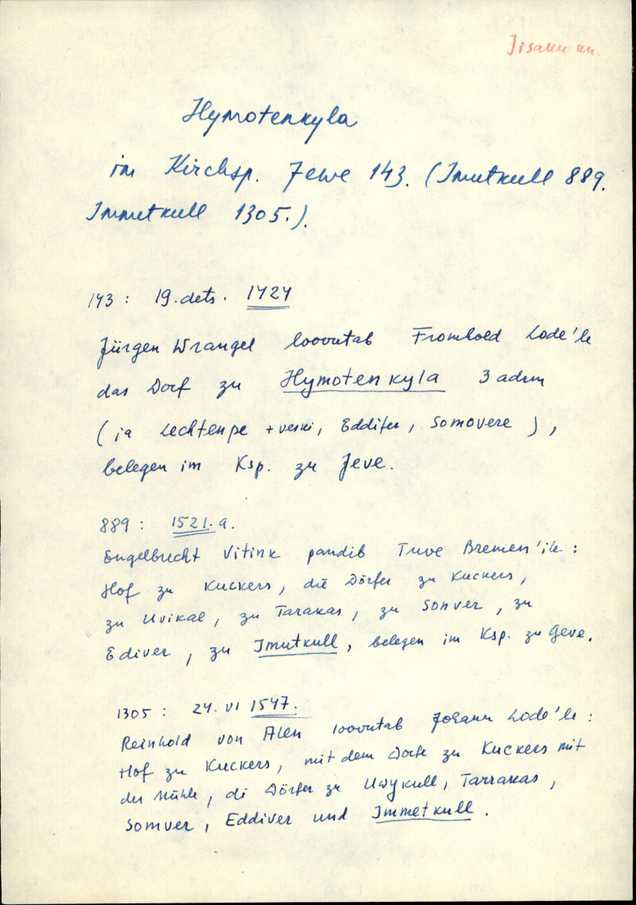 Jisaku kn.
Hymotenkyla
im Kirchsp. Jewe 143. (Imutkull 889.
Immetkull 1305.).
143: 19. dets. 1424
Jürgen Wrangel loovutab Fromhold Lode'le
das Dorf zu Hymotenkyla 3 adrm
(ja Lechtenpe + veski, Eddifer, Somovere),
belegen im Ksp. zu Jeve.
889: 1521. a.
Engelbrecht Vitink pandib Tuve Bremen'ile:
Hof zu Kuckers, die Dörfer zu Kuckers,
zu Uvikal, zu Tarakas, zu Sonver, zu
Ediver, zu Imutkull, belegen im Ksp. zu Geve.
1305: 24. VI 1547.
Reinhold von Alen loovutab Johann Lode'le:
Hof zu Kuckers, mit dem Dorfe zu Kuckers mit
der Mühle, di Dörfer zu Uwykull, Tarrakas,
Somver, Eddiver und Immetkull.